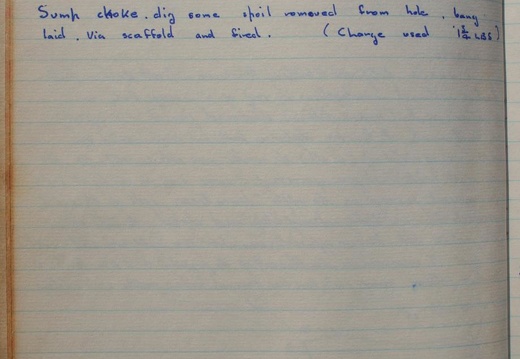 Sump choke. dig some spoil removed from hole. bang
laid. Via scaffold and fired. (Charge used 1¾ LBS)